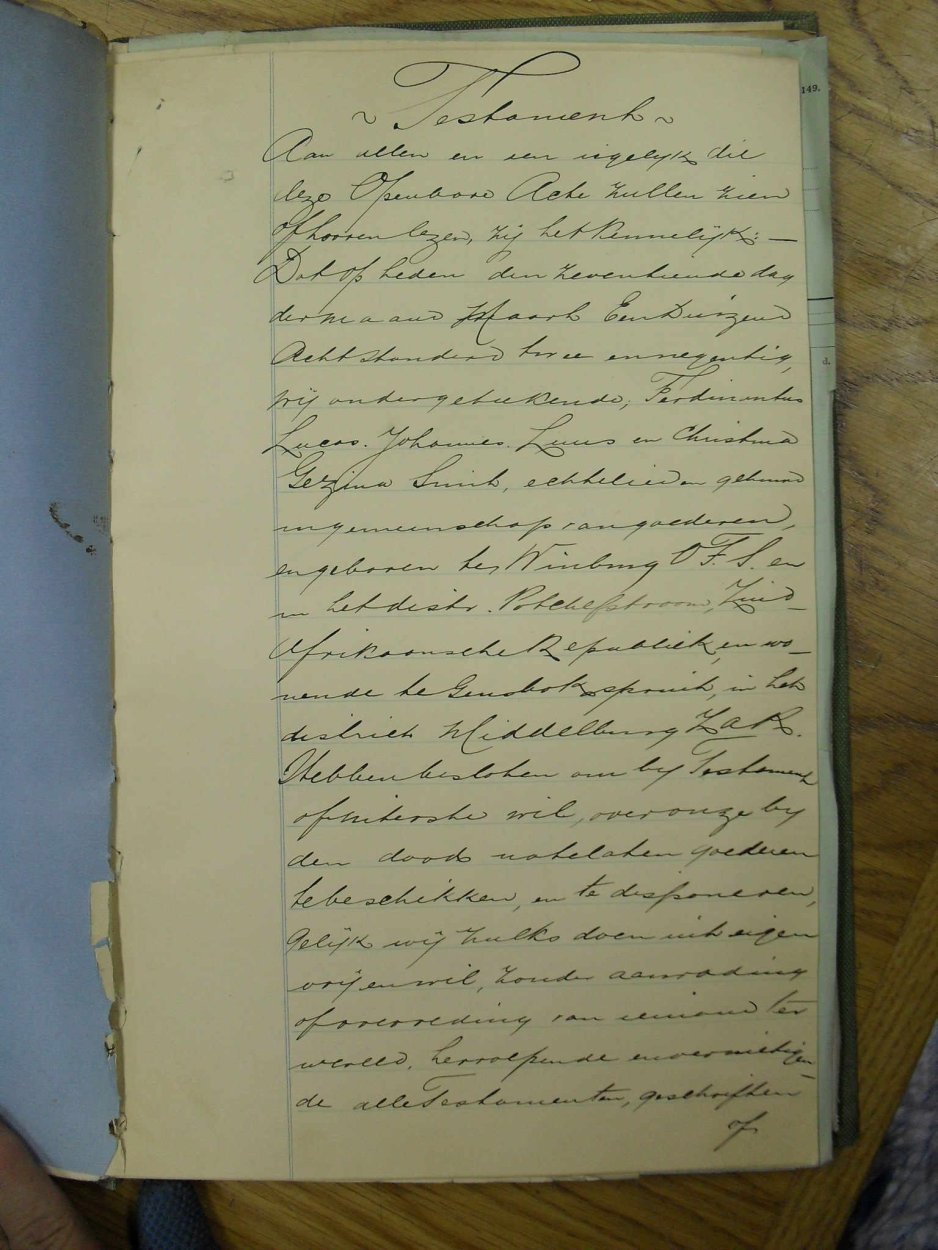 149.
d.
~ Testament ~
Aan allen en een iegelijk die
deze Openbare Acte zullen zien
of hooren lezen, zij het kennelijk: —
Dat op heden den zeventiende dag
der maand Maart Een Duizend
Acht honderd twee en negentig,
wij ondergeteekende, Ferdinantus
Lucas. Johannes. Luus en Christina
Gezina Smit, echtelieden gehuwd
in gemeenschap van goederen,
en geboren te, Winburg O.F.S. en
in het distr. Potchefstroom, Zuid-
Afrikaansche Republiek, en wo-
nende te Gensbokspruit, in het
district Middelburg ZAR.
Hebben besloten om by Testament
of uiterste wil, over onze by
den dood natelaten goederen
te beschikken, en te disponeren,
Gelijk wij zulks doen uit eigen
vrijen wil, zonder aanrading
of overreding van iemand ter
wereld, herroepende en vernietigen-
de alle Testamenten, geschriften
of